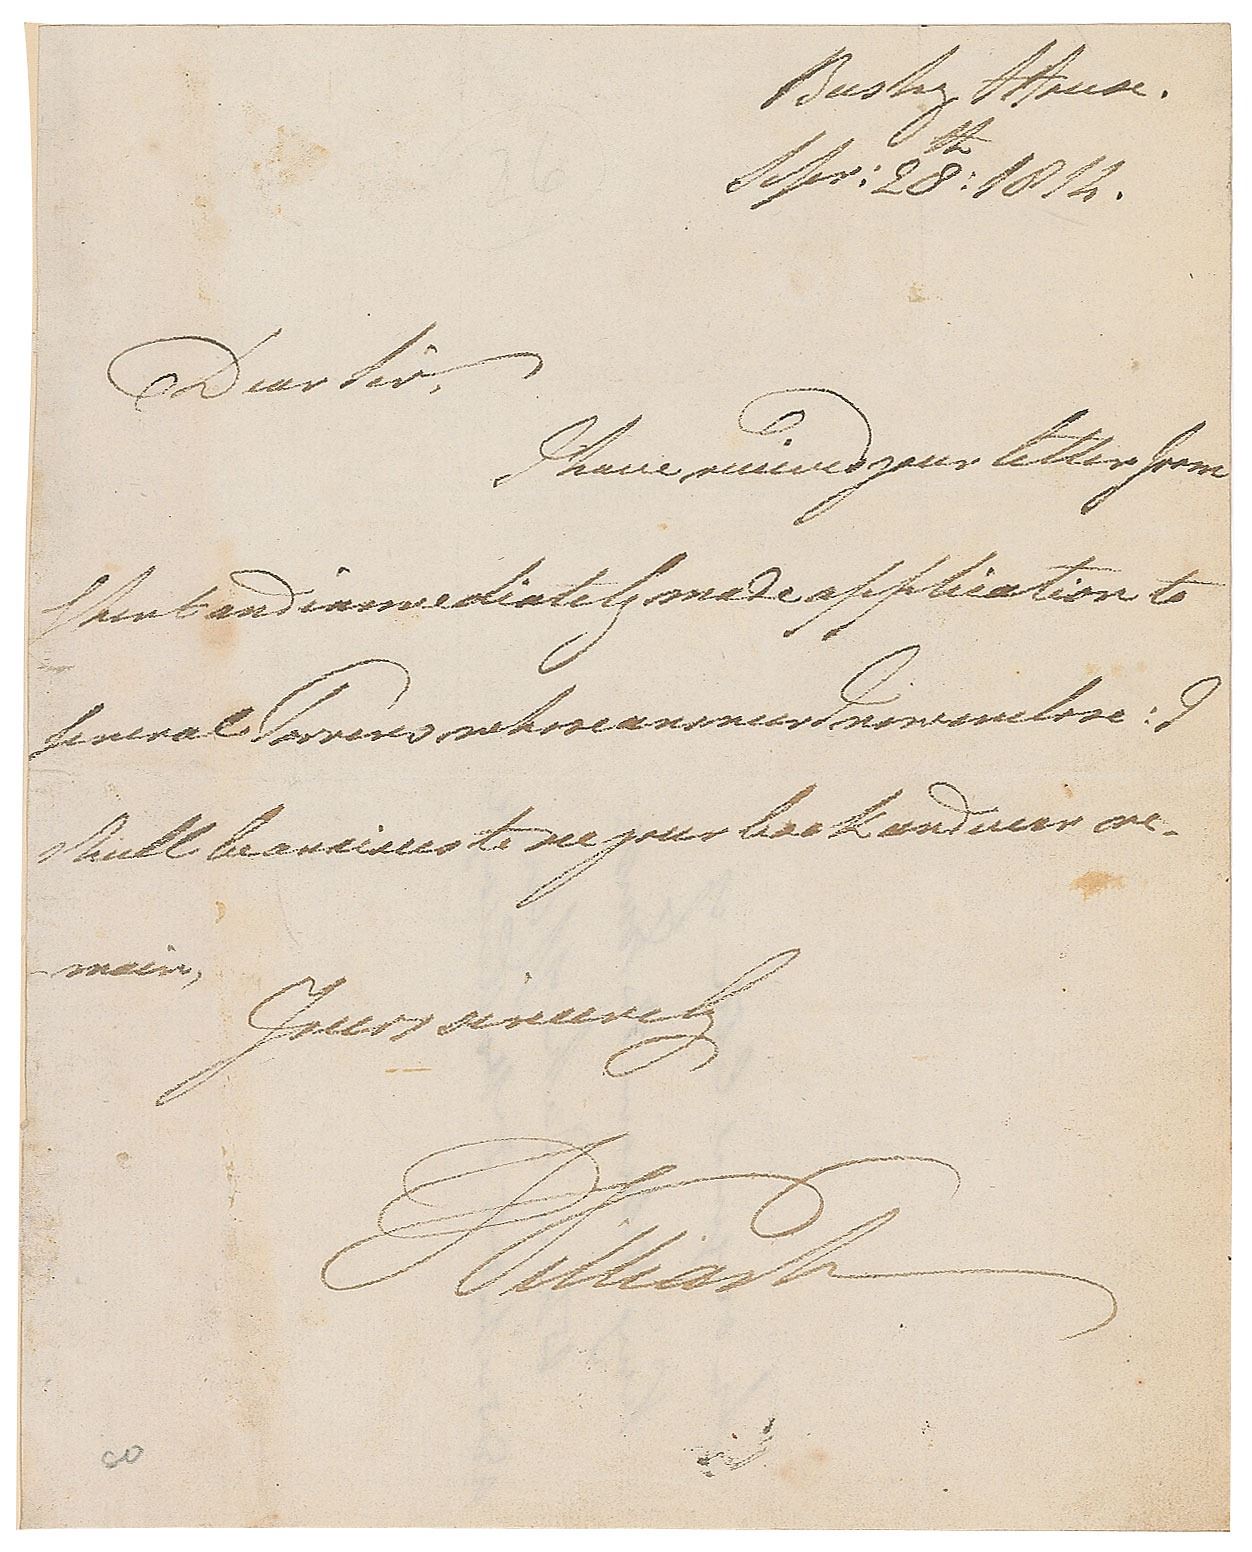 Bushy House.
Sepr: 28th: 1814.
Dear Sir,
I have received your letter from
Ghent and immediately made application to
General Torrens whose answer I now enclose: I
shall be anxious to see your book and ever re-
-main,
Yours sincerely
William